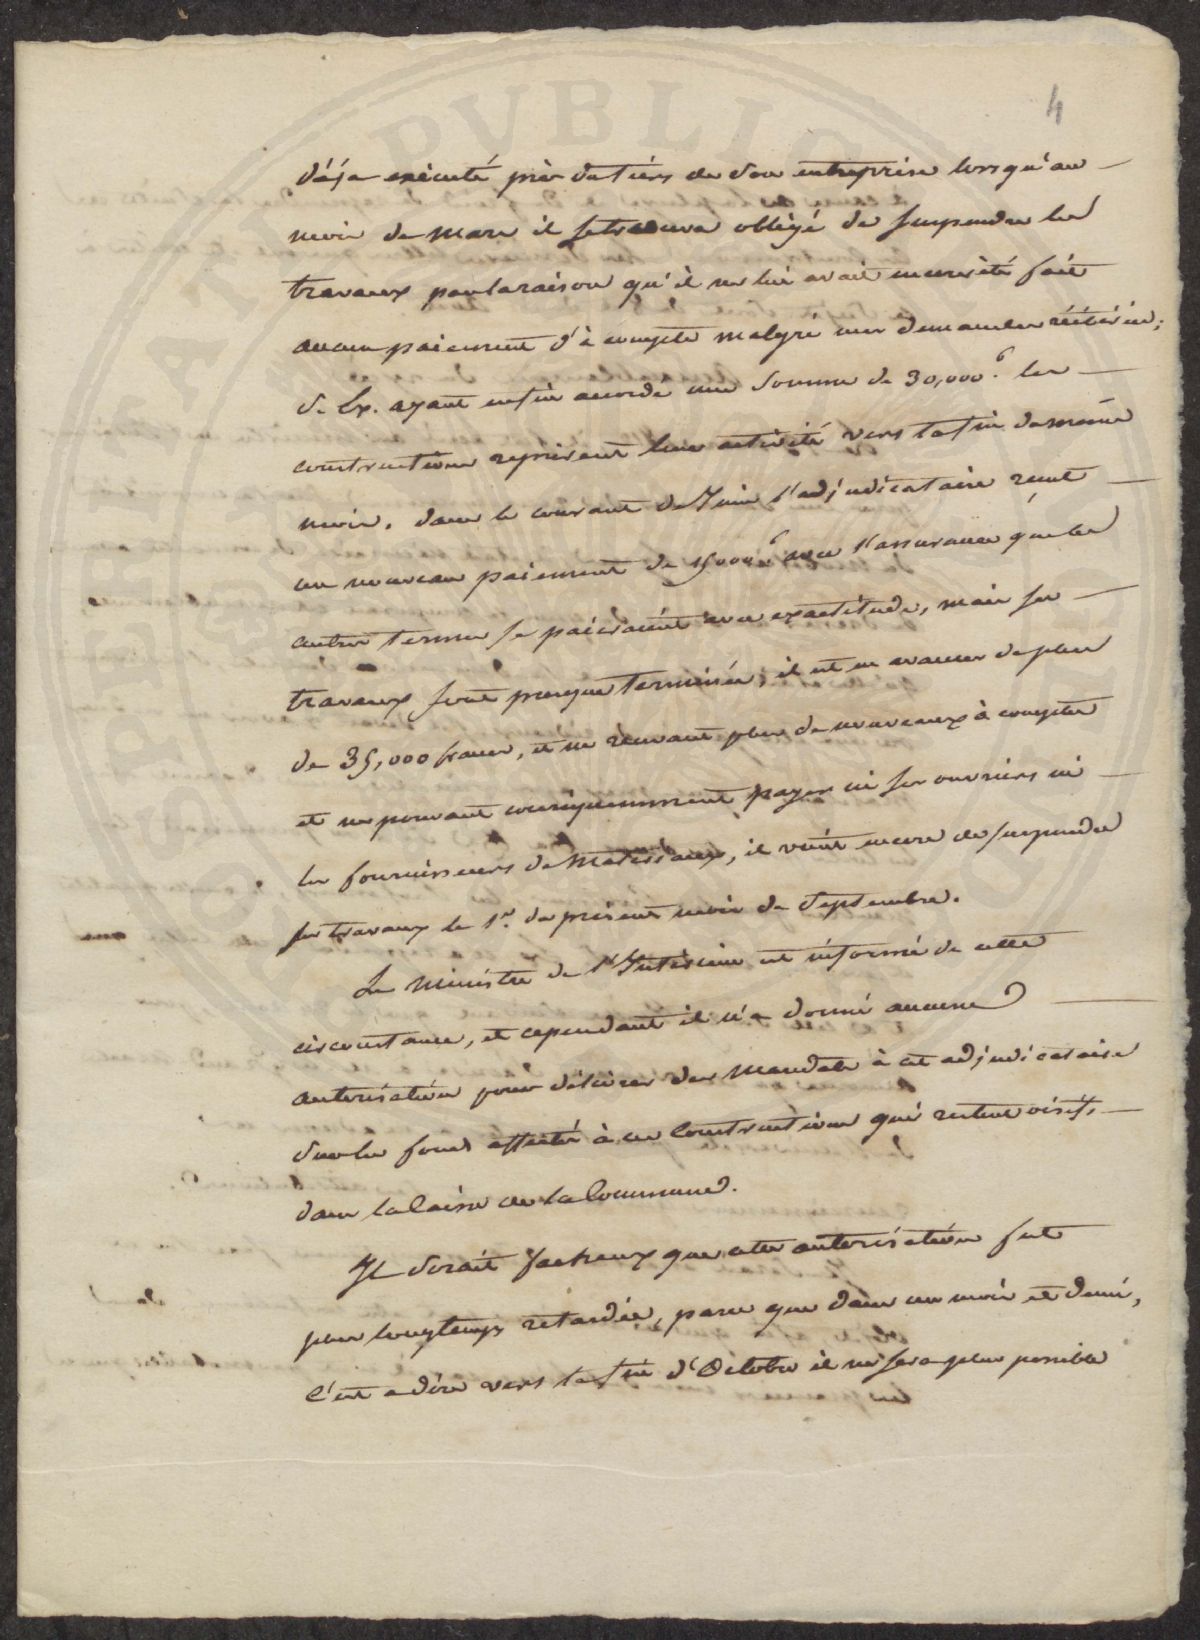 4
déja exécuté près du tiers de son entreprise lorsqu'au
mois de mars il se trouva obligé de suspendre les
travaux par la raison qu'il ne lui avait encore été fait
aucun paiement d'à compte malgré ses demandes réitérées;
S. Ex. ayant enfin accordé une somme de 30,000.f les
constructions reprirent leur activité vers la fin du même
mois. dans le courant de Juin l'adjudicataire reçut
un nouveau paiement de 15000f avec l'assurance que les
autres termes se paieraient avec exactitude, mais ses
travaux sont presque terminés, il est en avance de plus
de 35,000 francs, et ne recevant plus de nouveaux à comptes
et ne pouvant conséquemment payer ni ses ouvriers ni
les fournisseurs de Matériaux, il vient encore de suspendre
ses travaux le 1er. du présent mois de Septembre.
Le Ministre de l'Intérieur est informé de cette
circonstance, et cependant il n'a donné aucune
autorisation pour délivrer des Mandats à cet adjudicataire
sur les fonds affectés à ces Constructions qui restent oisifs,
dans la Caisse de la Commune.
Il serait facheux que cette autorisation fut
plus longtemps retardée, parce que dans un mois et demi,
c'est a dire vers la fin d'Octobre il ne sera plus possible
PVBLIC